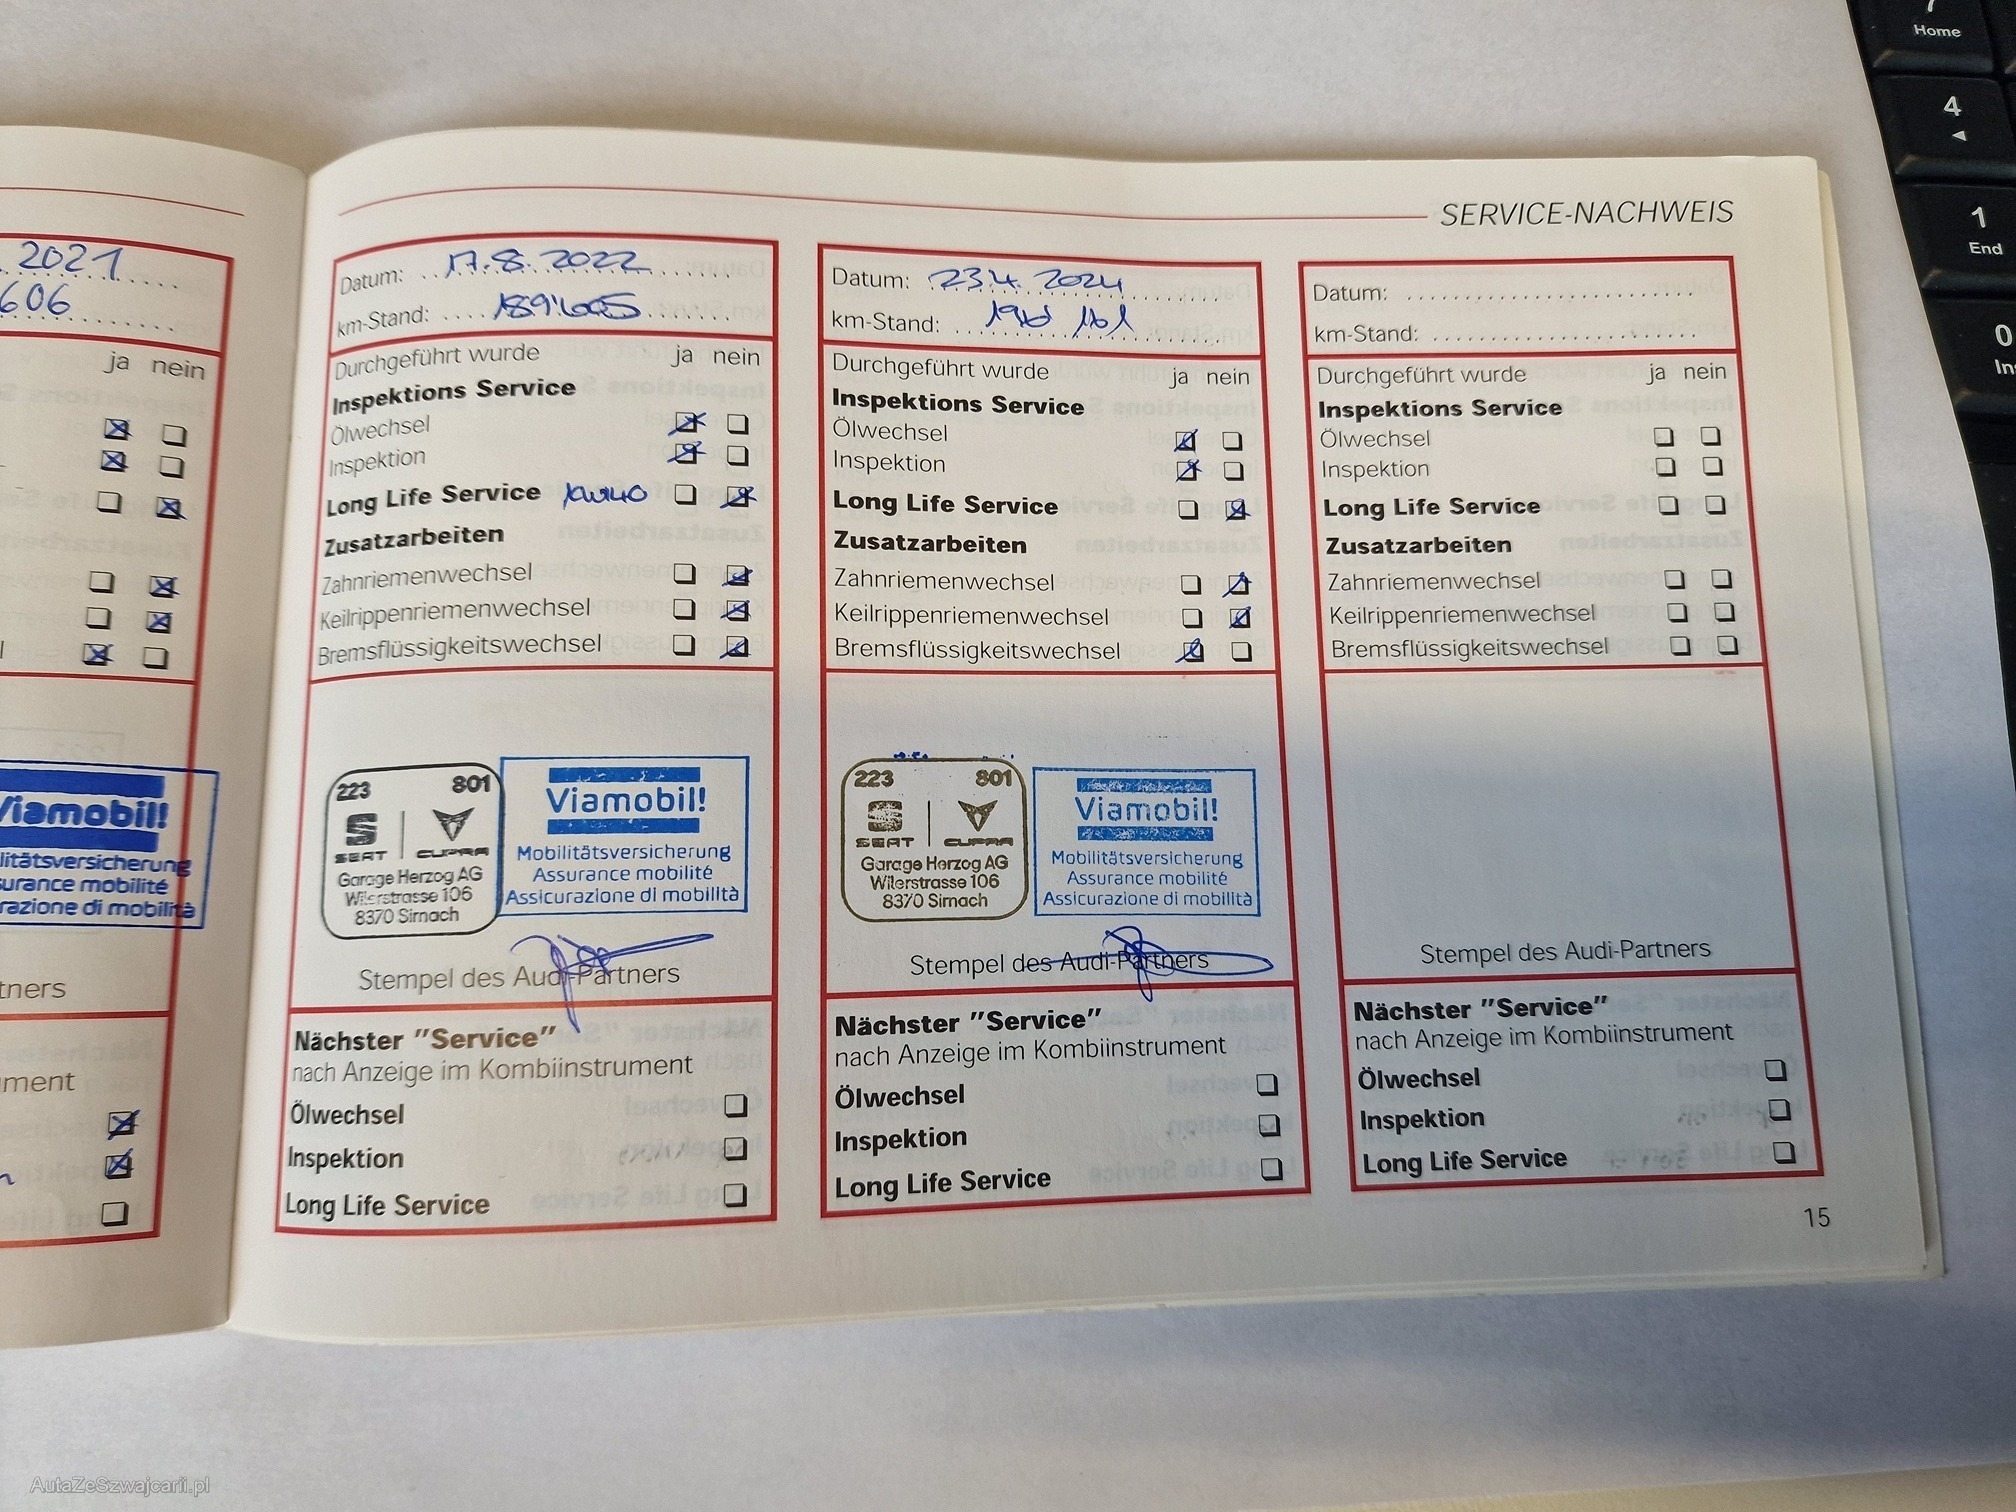 SERVICE-NACHWEIS
2021
606
ja nein
Viamobil!
litätsversicherung
surance mobilité
razione di mobilità
tners
ment
Datum: 17.8.2022
km-Stand:
Durchgeführt wurde ja nein
Inspektions Service
Ölwechsel
Inspektion
Long Life Service
Zusatzarbeiten
Zahnriemenwechsel
Keilrippenriemenwechsel
Bremsflüssigkeitswechsel
223 801
SEAT CUPRA
Garage Herzog AG
Wilerstrasse 106
8370 Sirnach
Viamobil!
Mobilitätsversicherung
Assurance mobilité
Assicurazione di mobilità
Stempel des Audi-Partners
Nächster "Service"
nach Anzeige im Kombiinstrument
Ölwechsel
Inspektion
Long Life Service
Datum: 23.4. 2024
km-Stand:
Durchgeführt wurde ja nein
Inspektions Service
Ölwechsel
Inspektion
Long Life Service
Zusatzarbeiten
Zahnriemenwechsel
Keilrippenriemenwechsel
Bremsflüssigkeitswechsel
223 801
SEAT CUPRA
Garage Herzog AG
Wilerstrasse 106
8370 Sirnach
Viamobil!
Mobilitätsversicherung
Assurance mobilité
Assicurazione di mobilità
Stempel des Audi-Partners
Nächster "Service"
nach Anzeige im Kombiinstrument
Ölwechsel
Inspektion
Long Life Service
Datum:
km-Stand:
Durchgeführt wurde ja nein
Inspektions Service
Ölwechsel
Inspektion
Long Life Service
Zusatzarbeiten
Zahnriemenwechsel
Keilrippenriemenwechsel
Bremsflüssigkeitswechsel
Stempel des Audi-Partners
Nächster "Service"
nach Anzeige im Kombiinstrument
Ölwechsel
Inspektion
Long Life Service
15
7
Home
4
1
End
0
Ins
AutaZeSzwajcarii.pl